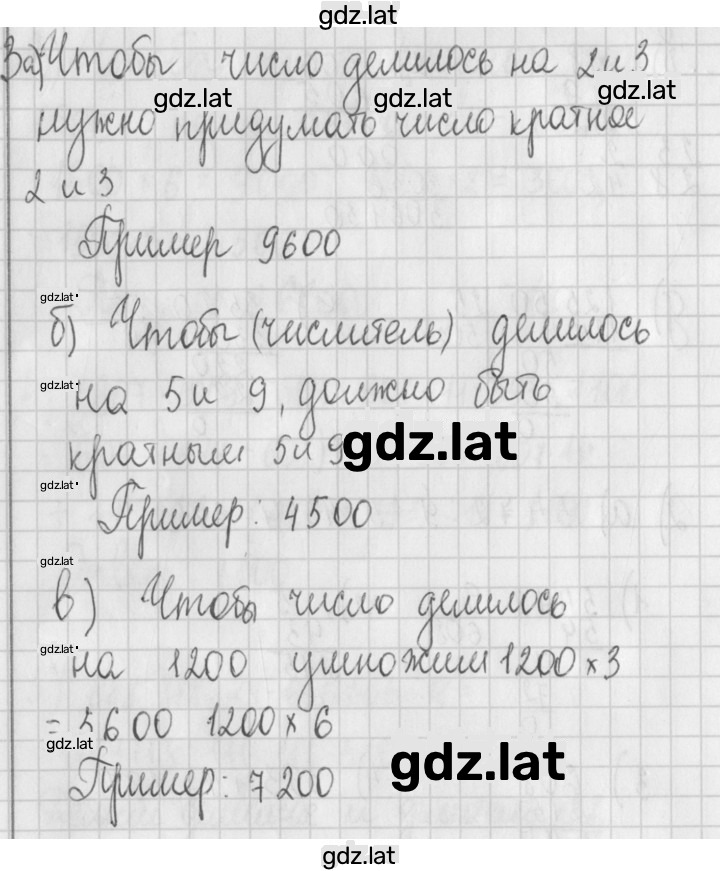 gdz.lat
3а) Чтобы число делилось на 2 и 3
gdz.lat gdz.lat gdz.lat
нужно придумать число кратное
2 и 3
Пример 9600
gdz.lat
б) Чтобы (числитель) делилось
gdz.lat
на 5 и 9, должно быть
кратным 5 и 9
gdz.lat
gdz.lat
Пример: 4500
gdz.lat
в) Чтобы число делилось
gdz.lat
на 1200 умножим 1200 × 3
= 3600 1200 × 6
gdz.lat
gdz.lat
Пример: 7200
gdz.lat